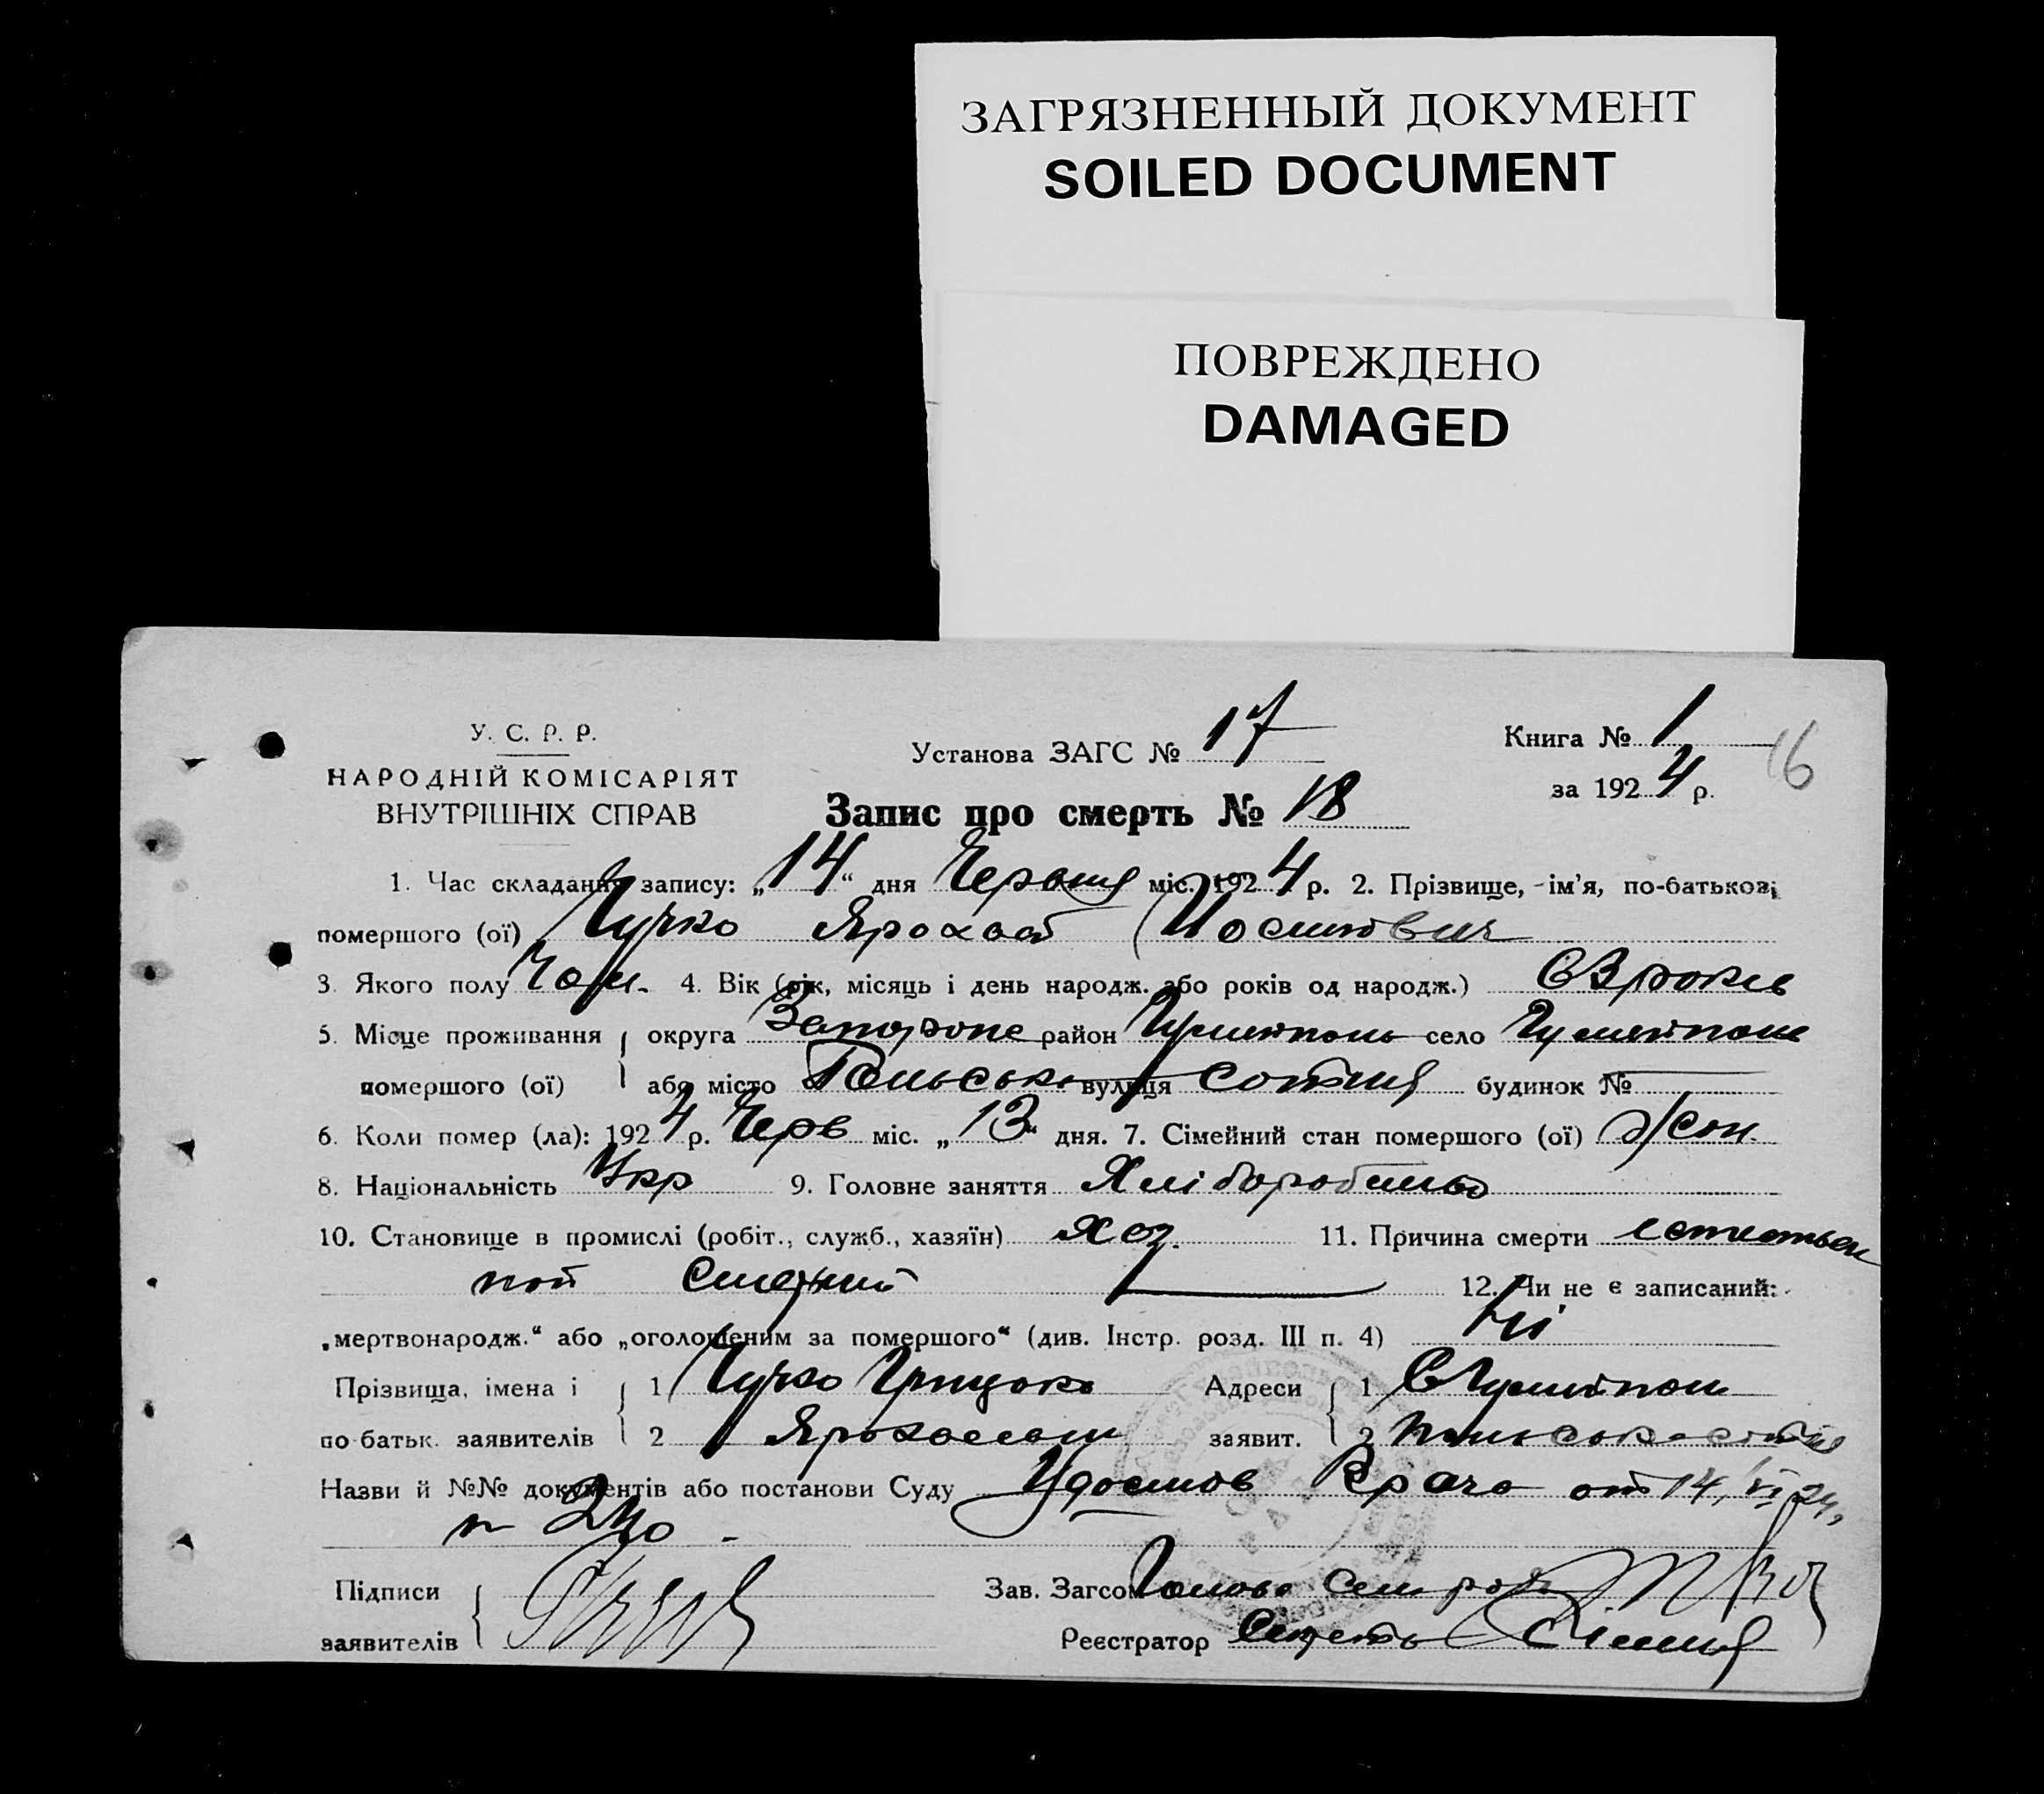 ЗАГРЯЗНЕННЫЙ ДОКУМЕНТ
SOILED DOCUMENT
ПОВРЕЖДЕНО
DAMAGED
У. С. Р. Р.
НАРОДНІЙ КОМІСАРІЯТ
ВНУТРІШНІХ СПРАВ
Установа ЗАГС № 17
Книга № 1
за 1924 р.
16
Запис про смерть № 18
1. Час складання запису: „14“ дня Червня міс. 1924 р. 2. Прізвище, ім'я, по-батькові
помершого (ої) Гучко Йосипович
3. Якого полу Чол. 4. Вік (рік, місяць і день народж. або років од народж.) 63 років
5. Місце проживання округа Запорож район Гуляйполь село Гуляйполе
помершого (ої) або місто Польська вулиця сотня будинок №
6. Коли помер (ла): 1924 р. Черв міс. „13“ дня. 7. Сімейний стан помершого (ої) Жон.
8. Національність Укр 9. Головне заняття Хліборобство
10. Становище в промислі (робіт., служб., хазяїн) Хоз. 11. Причина смерти естествен
ной смертю 12. Чи не є записаний:
„мертвонародж.“ або „оголошеним за помершого“ (див. Інстр. розд. III п. 4) Ні
Прізвища, імена і 1 Гучко Грицько Адреси 1 С Гуляйполе
по батьк. заявителів 2 заявит. 2 Польська сотня
Назви й №№ документів або постанови Суду Удостов Врача от 14/VI 24,
№ 240
Підписи Зав. Загсом Голова
заявителів Реєстратор Секреть